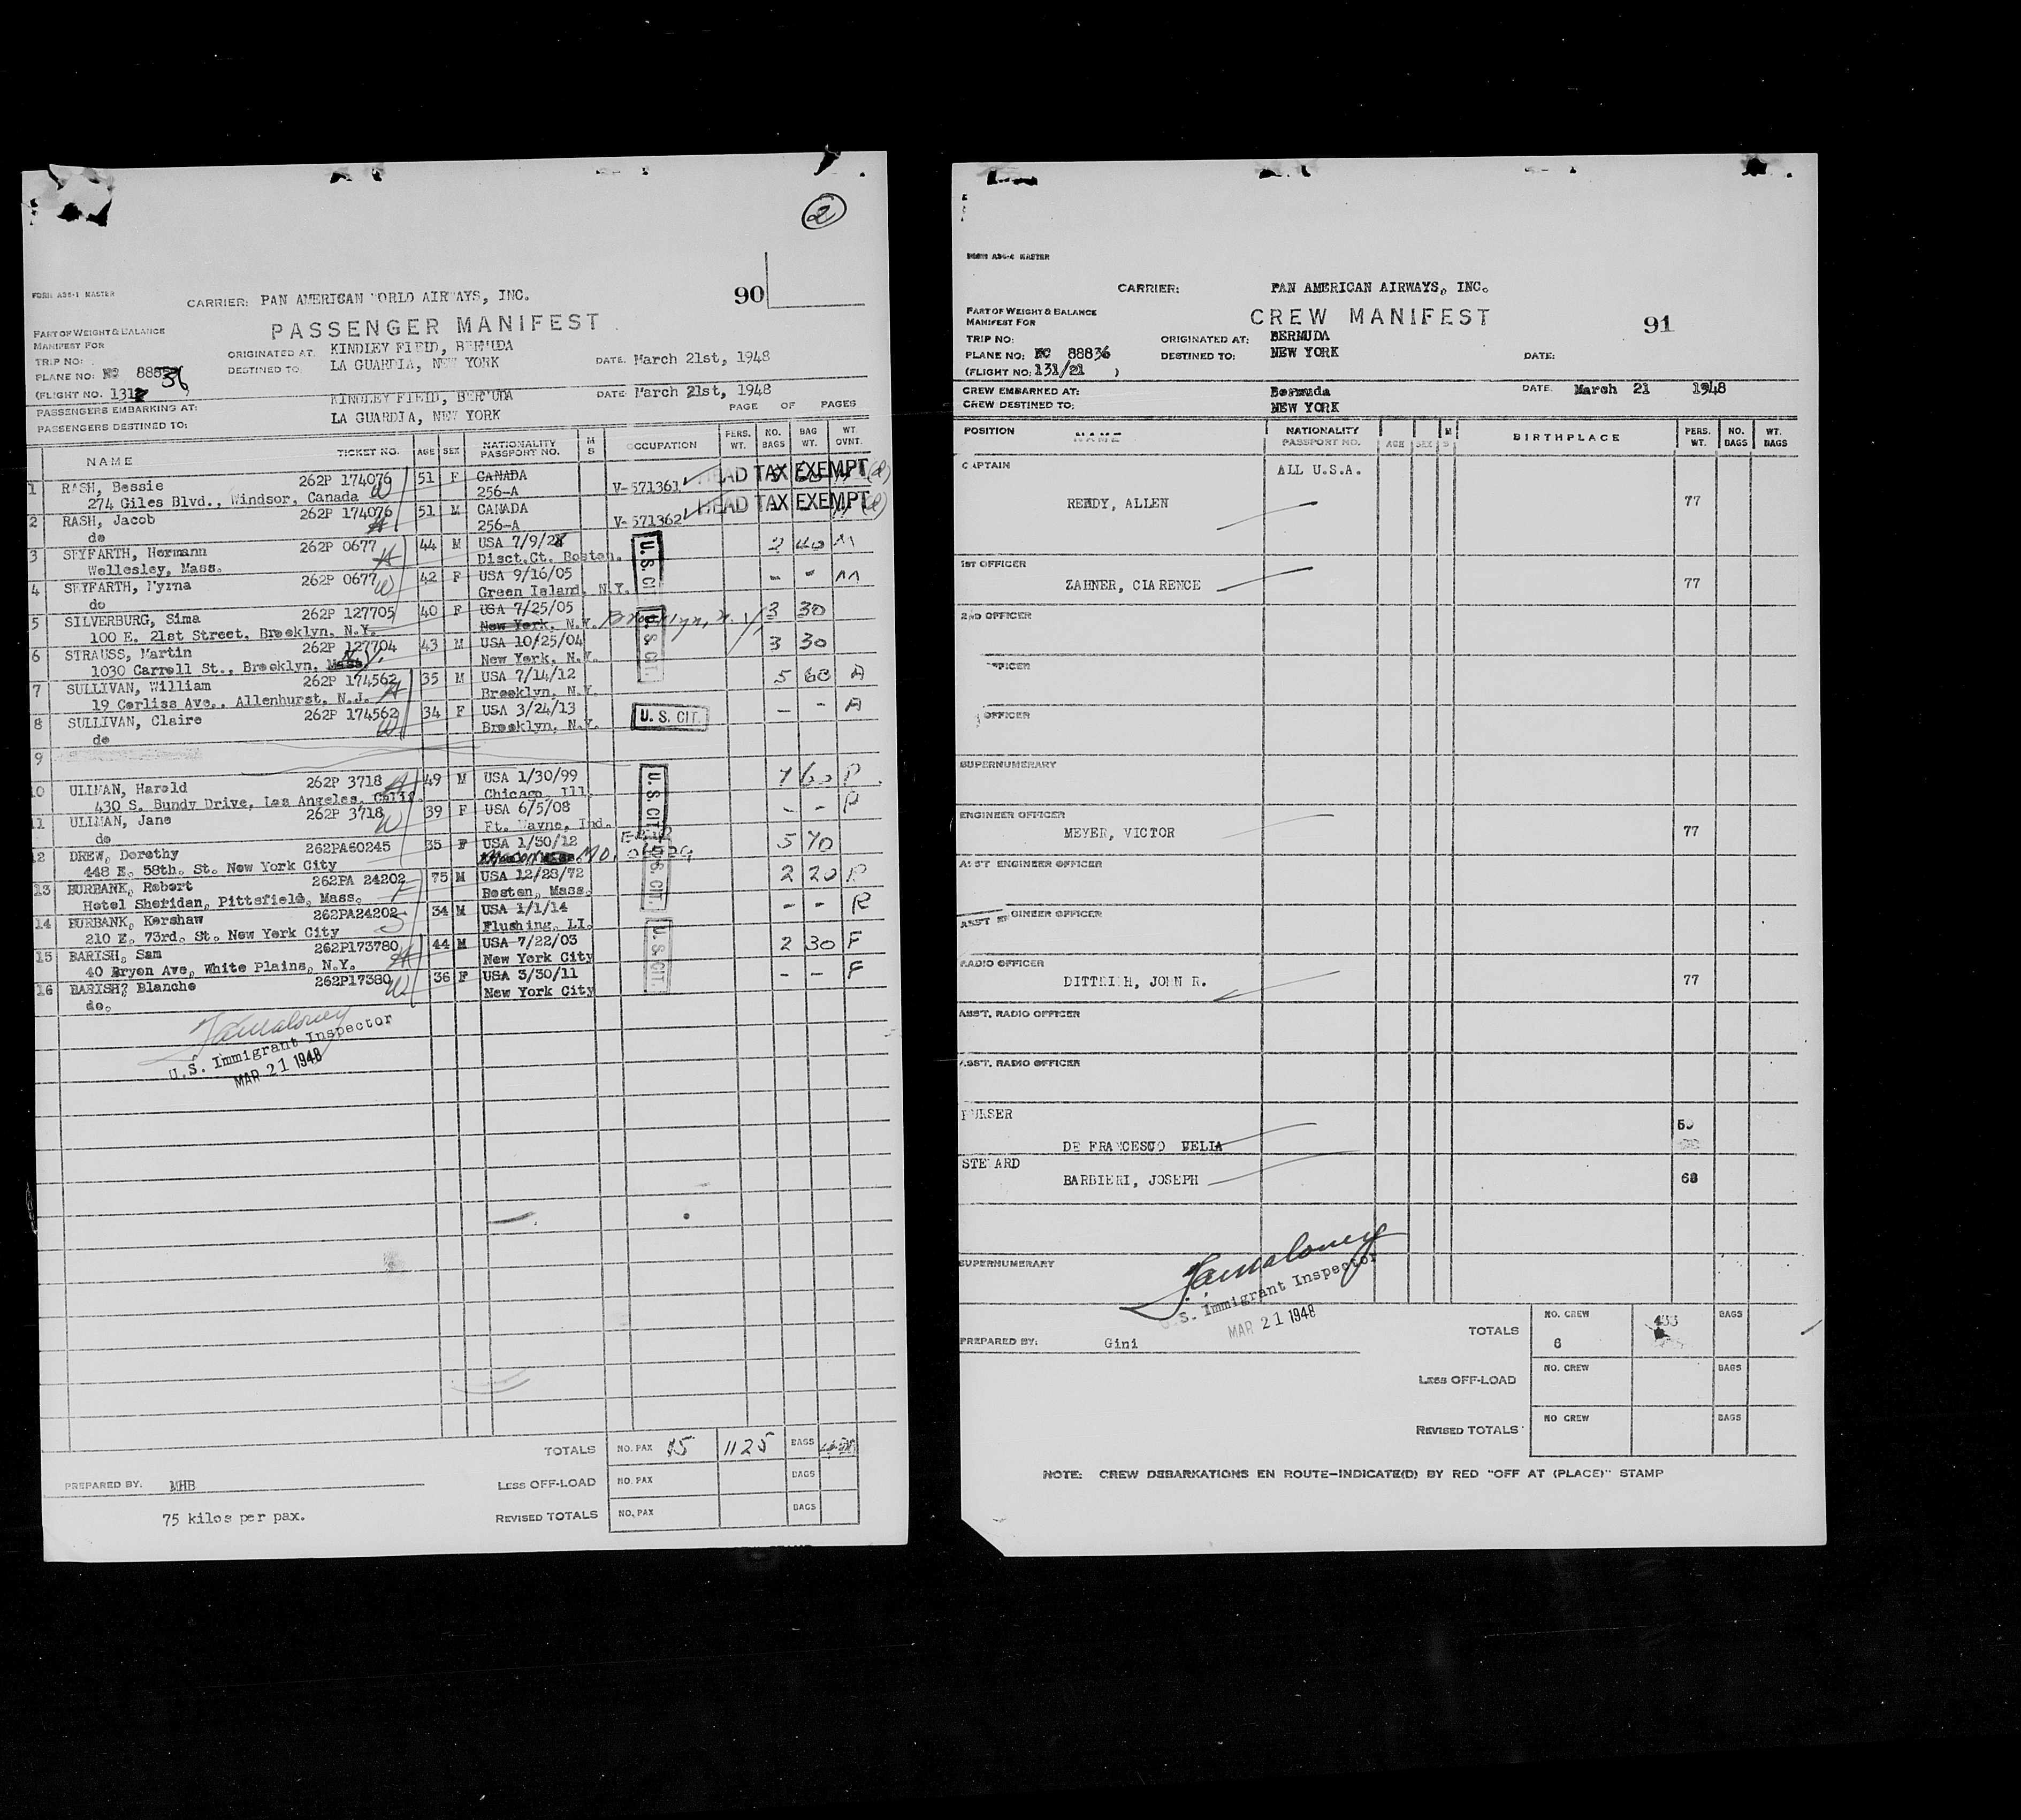 2
FORM A36-1 MASTER
CARRIER: PAN AMERICAN WORLD AIRWAYS, INC.
90
PASSENGER MANIFEST
PART OF WEIGHT & BALANCE
MANIFEST FOR
TRIP NO:
ORIGINATED AT: KINDLEY FIELD, BERMUDA
DATE: March 21st, 1948
PLANE NO: NC 88836
DESTINED TO: LA GUARDIA, NEW YORK
(FLIGHT NO. 131
PASSENGERS EMBARKING AT: KINDLEY FIELD, BERMUDA
DATE: March 21st, 1948
PASSENGERS DESTINED TO: LA GUARDIA, NEW YORK
PAGE OF PAGES
NAME TICKET NO. AGE SEX NATIONALITY PASSPORT NO. M S OCCUPATION PERS. WT. NO. BAGS BAG WT. WT. OVNT.
1 RASH, Bessie 262P 174076 W 51 F CANADA HEAD TAX EXEMPT
274 Giles Blvd., Windsor, Canada 256-A V-571361
2 RASH, Jacob 262P 174076 H 51 M CANADA HEAD TAX EXEMPT
do 256-A V-571362
3 SEYFARTH, Hermann 262P 0677 H 44 M USA 7/9/28 U.S. CIT. 2 40 M
Wellesley, Mass. Disct.Ct. Boston.
4 SEYFARTH, Myrna 262P 0677 W 42 F USA 9/16/05 - - M
do Green Island, N.Y.
5 SILVERBURG, Sima 262P 127705 40 F USA 7/25/05 3 30
100 E. 21st Street, Brooklyn, N.Y. New York, N.Y. Brooklyn, N.Y. U.S. CIT.
6 STRAUSS, Martin 262P 127704 43 M USA 10/25/04 3 30
1030 Carroll St., Brooklyn, Mass N.Y. New York, N.Y.
7 SULLIVAN, William 262P 174562 H 35 M USA 7/14/12 5 68 A
19 Corliss Ave., Allenhurst, N.J. Brooklyn, N.Y.
8 SULLIVAN, Claire 262P 174562 W 34 F USA 3/24/13 U. S. CIT. - - A
do Brooklyn, N.Y.
9
10 ULLMAN, Harold 262P 3718 H 49 M USA 1/30/99 U.S. CIT. 7 60 P
430 S. Bundy Drive, Los Angeles, Calif. Chicago, Ill.
11 ULLMAN, Jane 262P 3718 W 39 F USA 6/5/08 - - P
do Ft. Wayne, Ind.
12 DREW, Dorothy 262PA60245 35 F USA 1/30/12 U.S. CIT. 5 70
448 E. 58th. St. New York City MO.
13 BURBANK, Robert 262PA 24202 F 75 M USA 12/28/72 2 20 R
Hotel Sheridan, Pittsfield, Mass. Boston, Mass.
14 BURBANK, Kershaw 262PA24202 S 34 M USA 1/1/14 - - R
210 E. 73rd. St. New York City Flushing, LI.
15 BARISH, Sam 262P173780 H 44 M USA 7/22/03 U.S. CIT. 2 30 F
40 Bryon Ave, White Plains, N.Y. New York City
16 BARISH, Blanche 262P17380 W 36 F USA 3/30/11 - - F
do. New York City
U.S. Immigrant Inspector
MAR 21 1948
TOTALS NO. PAX 15 1125 BAGS
PREPARED BY. MHB
LESS OFF-LOAD NO. PAX BAGS
75 kilos per pax.
REVISED TOTALS NO. PAX BAGS
FORM A36-2 MASTER
CARRIER: PAN AMERICAN AIRWAYS, INC.
CREW MANIFEST
91
PART OF WEIGHT & BALANCE
MANIFEST FOR
TRIP NO: ORIGINATED AT: BERMUDA
PLANE NO: NC 88836 DESTINED TO: NEW YORK DATE:
(FLIGHT NO: 131/21 )
CREW EMBARKED AT: Bermuda DATE. March 21 1948
CREW DESTINED TO: NEW YORK
POSITION NAME NATIONALITY PASSPORT NO. AGE SEX M S BIRTHPLACE PERS. WT. NO. BAGS WT. BAGS
CAPTAIN ALL U.S.A.
REDDY, ALLEN 77
1ST OFFICER
ZAHNER, CLARENCE 77
2ND OFFICER
OFFICER
OFFICER
SUPERNUMERARY
ENGINEER OFFICER
MEYER, VICTOR 77
ASST ENGINEER OFFICER
ASST ENGINEER OFFICER
RADIO OFFICER
DITTRICH, JOHN R. 77
ASST. RADIO OFFICER
ASST. RADIO OFFICER
PURSER
DE FRANCESCO VELIA
STEWARD
BARBIERI, JOSEPH 68
SUPERNUMERARY
U.S. Immigrant Inspector
MAR 21 1948
TOTALS NO. CREW 6 BAGS
PREPARED BY: Gini
LESS OFF-LOAD NO. CREW BAGS
REVISED TOTALS NO CREW BAGS
NOTE: CREW DEBARKATIONS EN ROUTE-INDICATE(D) BY RED "OFF AT (PLACE)" STAMP